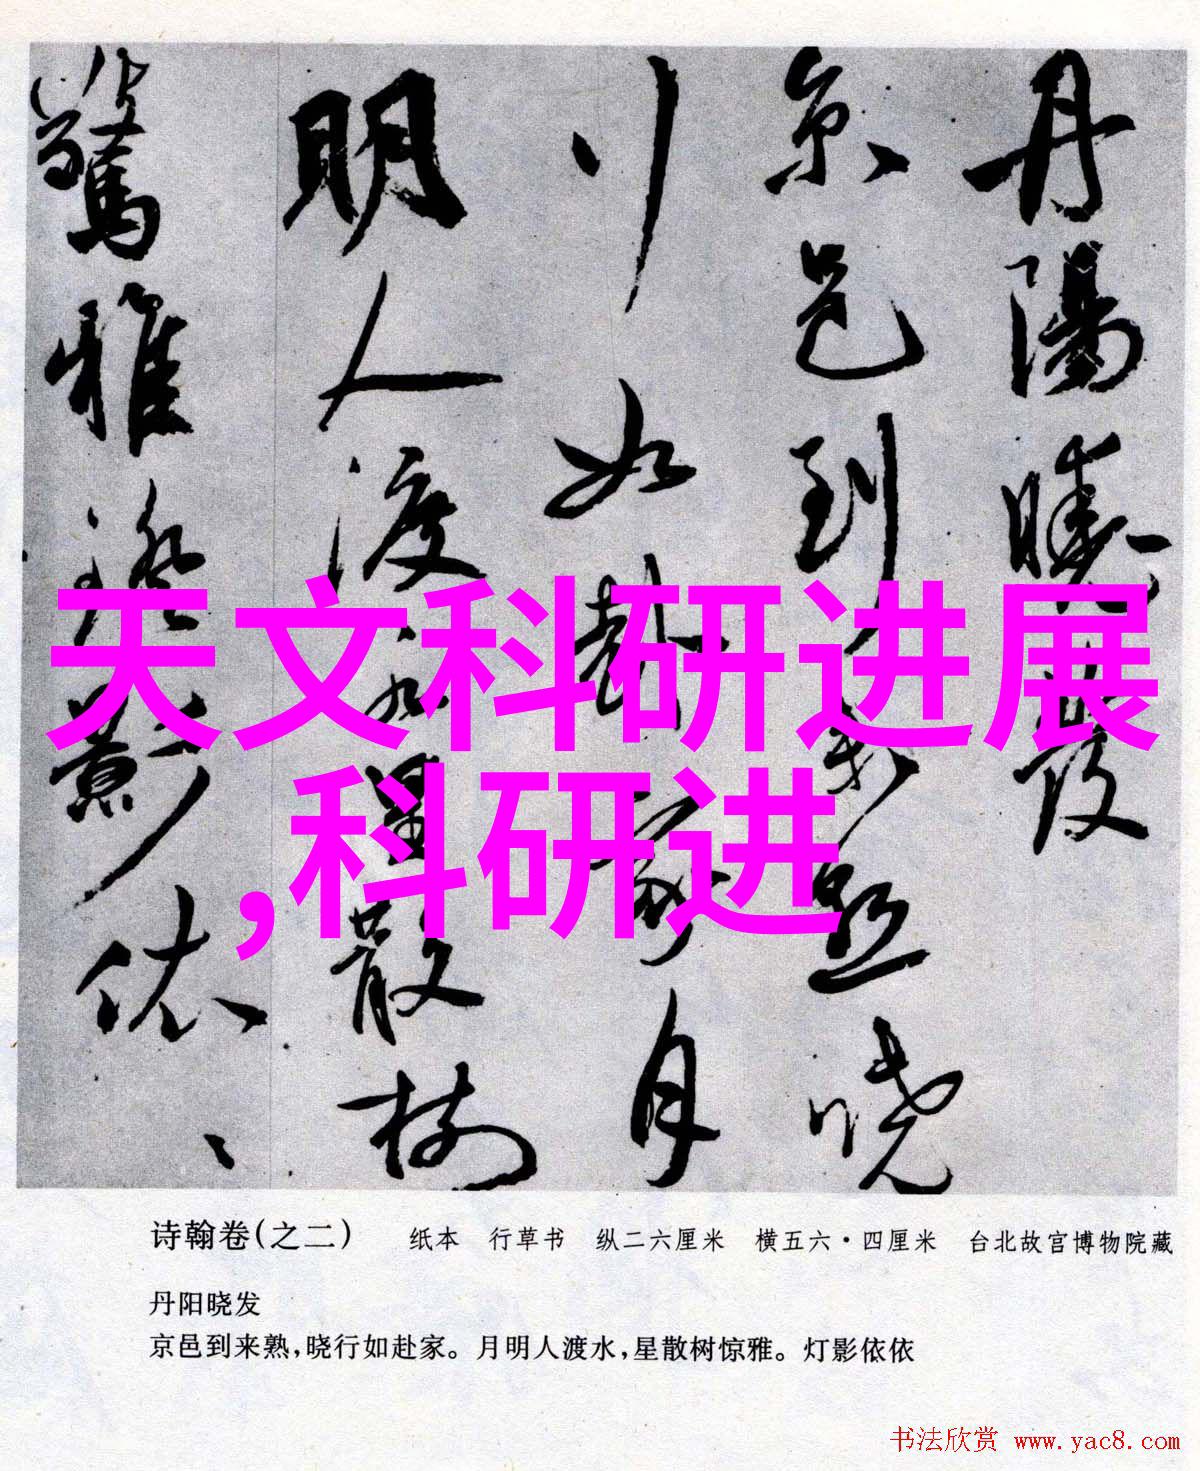 丹陽曉發
京邑到來熟曉
行如赴家月
明人渡水星散樹
驚鴉燈影依依
天文科研进展
,科研进
诗翰卷(之二) 纸本 行草书 纵二六厘米 横五六·四厘米 台北故宫博物院藏
丹阳晓发
京邑到来熟,晓行如赴家。月明人渡水,星散树惊雅。灯影依依
书法欣赏 www.yac8.com